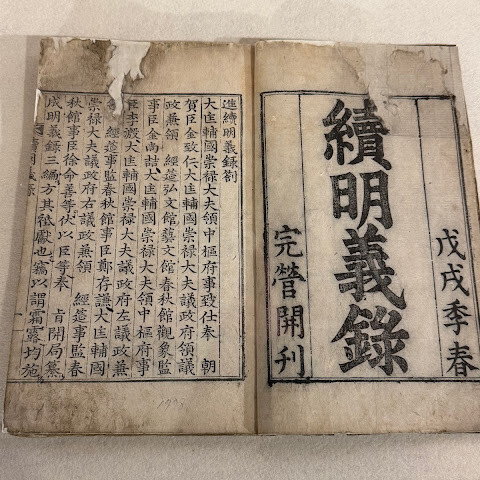 戊戌季春
續明義錄
完營開刊
進續明義錄劄
大匡輔國崇祿大夫領中樞府事致仕奉 朝
賀臣金致仁大匡輔國崇祿大夫議政府領議
政兼領 經筵弘文館藝文館春秋館觀象監
事臣金尚喆大匡輔國崇祿大夫領中樞府事
臣李溵大匡輔國崇祿大夫議政府左議政兼
經筵事監春秋館事臣鄭存謙大匡輔國
崇祿大夫議政府右議政兼領 經筵事監春
秋館事臣徐命善等伏以臣等奉 旨開局纂
成明義錄三編方其 獻也竊以謂霜露均施
1778